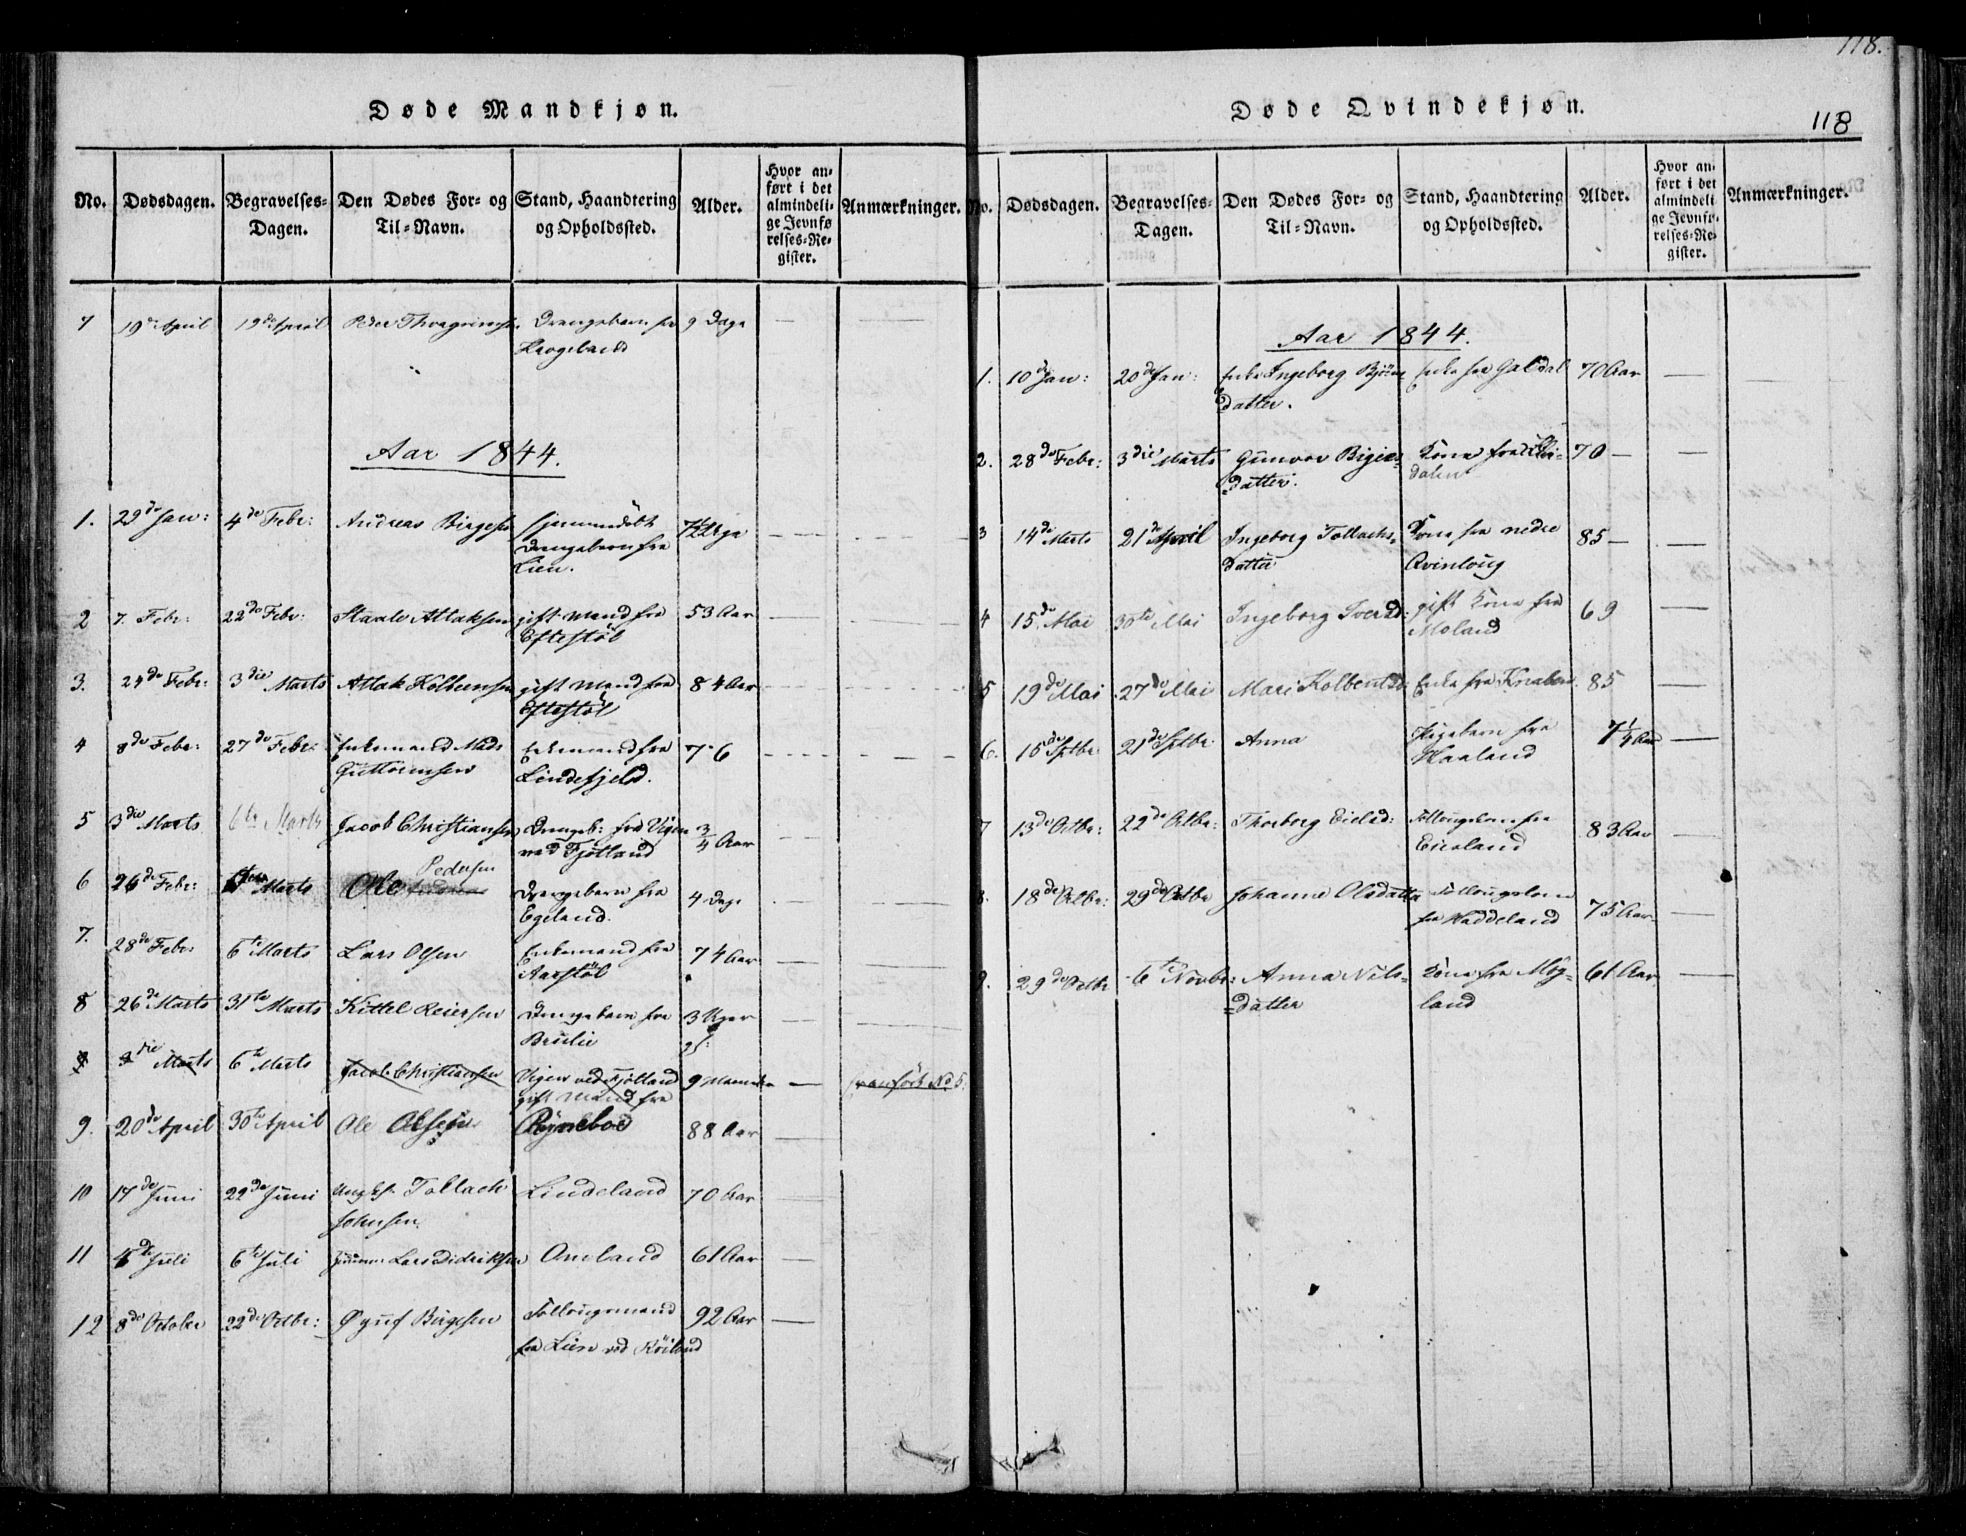 118.
Døde Mandkjøn.
No. Dødsdagen. Begravelses-Dagen. Den Dødes For- og Til-Navn. Stand, Haandtering og Opholdssted. Alder. Hvor anført i det almindelige Jevnførelses-Register. Anmærkninger.
7 19de April 19de April Drengebarn fra 9 Dage —
Haugeland
Aar 1844.
1. 29de Jan: 4de Febr: Andreas Birgesen hjemmedøbt
Drengebarn fra
Lien.
2 7. Febr: 22de Febr: Staale Atlaksen gift Mand fra 53 Aar
Eftestøl
3. 24de Febr: 3die Marts Atlak gift Mand fra 84 Aar
Eftestøl
4 8de Febr: 27de Febr: Enkemand Mads Enkemand fra 76
Guttormsen Lindefjeld.
5 3die Marts 6te Marts Jacob Christiansen Drengeb: fra Vigen 3/4 Aar
ved Fjotland
6 26de Febr: Marts Ole Pedersen Drengebarn fra 4 Dage
Egeland.
7. 28de Febr: 6te Marts Lars Olsen Enkemand fra 74 Aar
Aarstøl
8 26de Marts 31te Marts Kittel Reiersen Drengebarn fra 3 Uger
Brulie
9 3die Marts 6te Marts Jacob Christiansen Vigen ved Fjotland 9 Maaneder — No 5.
gift Mand fra
9. 20de April 30te April Ole Olsen 88 Aar —
10 17de Juni 22de Juni Ungk. Tollach Lindeland 70 Aar —
Johnsen.
11 4de Juli 6te Juli Lars Didriksen Omland 61 Aar —
12 8de October 22de Octbr: Øyuf Birgesen Follougsmand 92 Aar —
fra Lien ved
Døde Qvindekjøn.
118
No. Dødsdagen. Begravelses-Dagen. Den Dødes For- og Til-Navn. Stand, Haandtering og Opholdssted. Alder. Hvor anført i det almindelige Jevnførelses-Register. Anmærkninger.
Aar 1844.
1. 10de Jan: 20de Jan: Enke Ingeborg Bjørns Enke fra Galdal 70 Aar —
datter.
2. 28de Febr: 3die Marts Gunvor Kone fra 70 — —
Datter. dalen
3 14de Marts 21de April Ingeborg Tollachs- Kone fra nedre 85 — —
datter Qvinloug
4 15de Mai 30te Mai Ingeborg Iversd: gift Kone fra 69 —
Moland
5 19de Mai 27de Mai Mari Enke fra Knaben. 85 —
6. 15de Sptbr. 21de Sptbr. Anna Pigebarn fra 1/4 Aar —
Haaland
7 13de Octbr: 22de Octbr: Thorborg Follougskone fra 83 Aar —
Eieland
8. 18de Octbr: 29de Octbr Johanne Olsdatter Follougskone
fra Haddeland 75 Aar. —
9. 29de Octbr 6te Novbr: Anna Nils- Kone fra Møg- 61 Aar. —
datter land